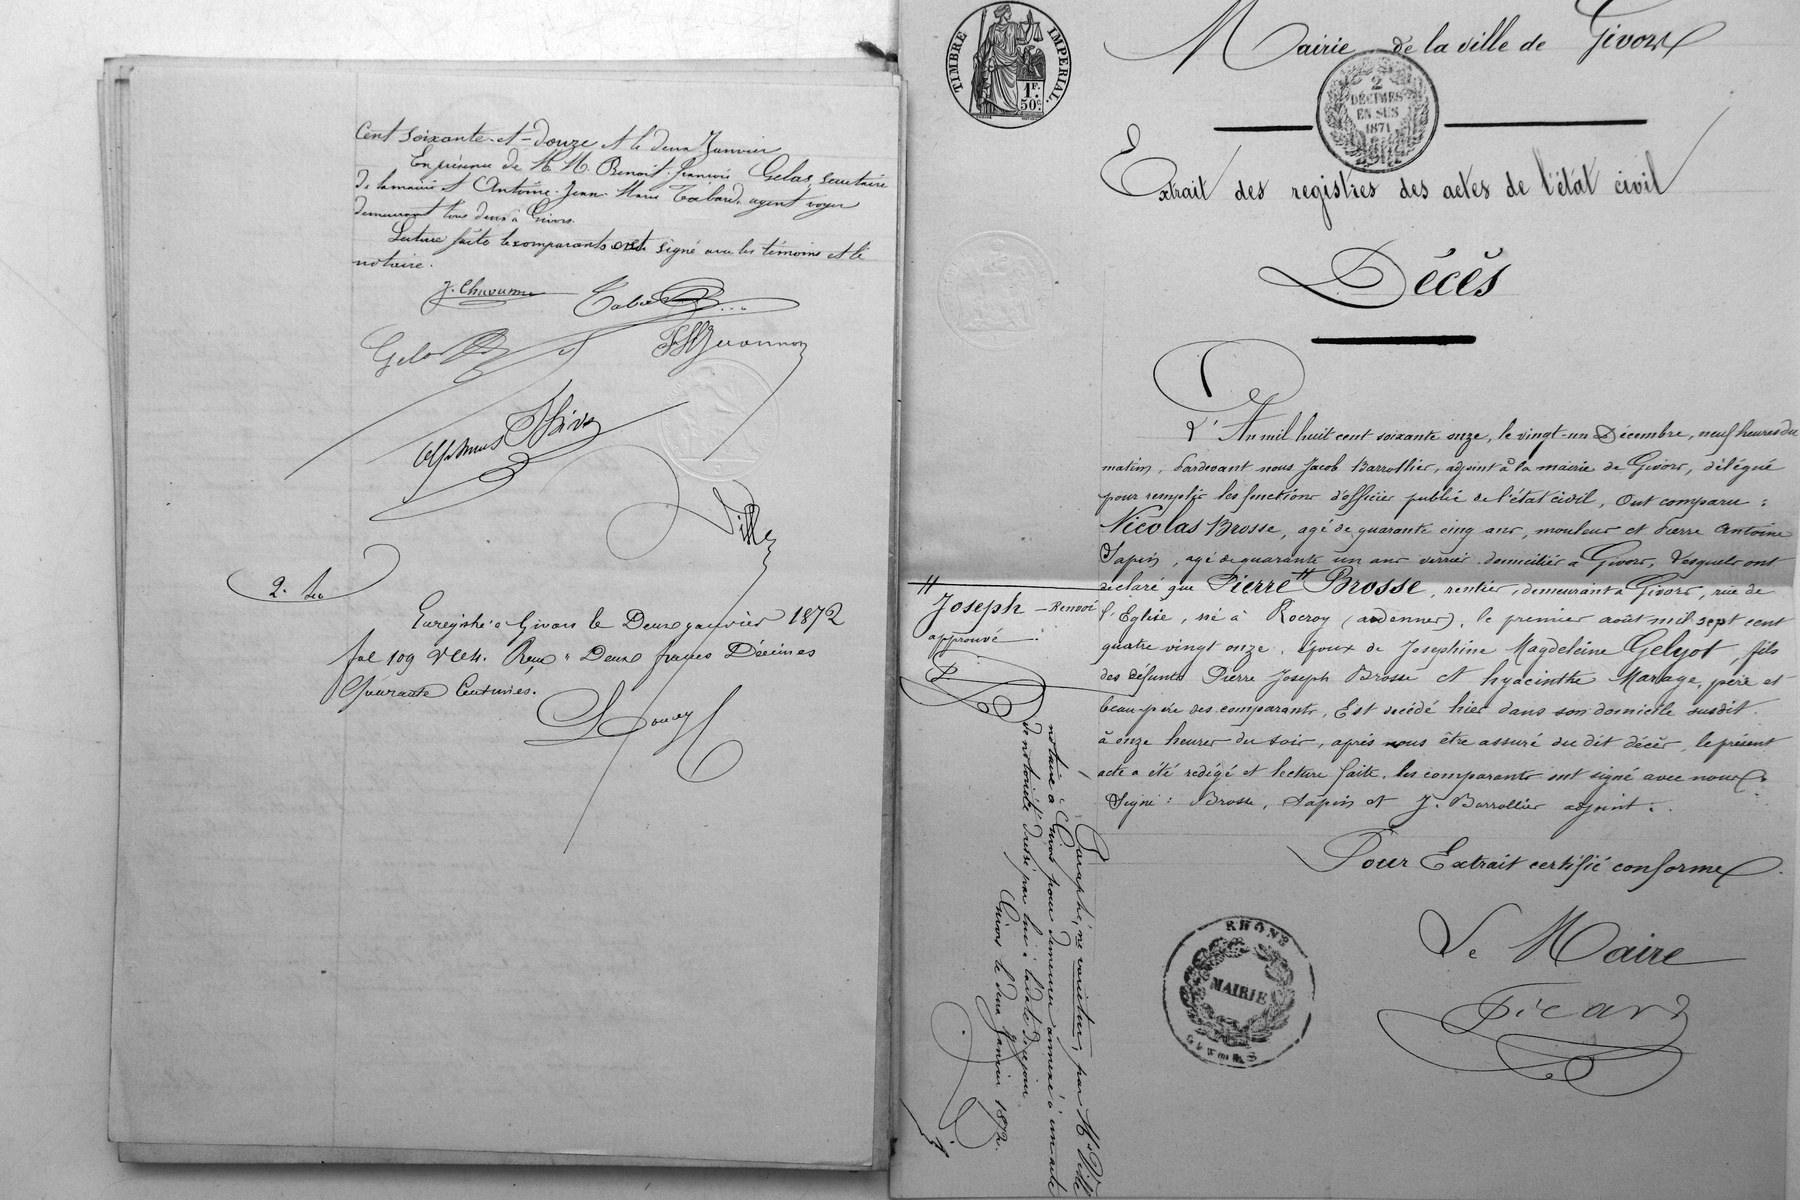 Cent soixante-et-douze et le deux Janvier
En présence de M.M. Benoit-François Gelas, secrétaire
de la mairie et Antoine-Jean-Marie Tabard, agent voyer
demeurant tous deux à Givors.
Lecture faite les comparants ont signé avec les témoins et le
notaire.
Tabard
Gelas
Ville
Enregistré à Givors le Deux janvier 1872
fol 109 Reçu Deux francs Décimes
Quarante Centimes.
TIMBRE IMPERIAL
1F.
50c.
Mairie de la ville de Givors
2
DÉCIMES
EN SUS
1871
Extrait des registres des actes de l'état civil
Décès
L'An mil huit cent soixante onze, le vingt-un Décembre, neuf heures du
matin, Pardevant nous Jacob Barrollier, adjoint à la mairie de Givors, délégué
pour remplir les fonctions d'officier public de l'état civil, Ont comparu :
Nicolas Brosse, agé de quarante cinq ans, mouleur et Pierre Antoine
Sapin, agé de quarante un ans verrier domiciliés a Givors, Lesquels ont
déclaré que Pierre # Brosse, rentier, demeurant a Givors, rue de
l'Eglise, né à Rocroy (ardennes), le premier août mil sept cent
quatre vingt onze, Epoux de Josephine Magdeleine Gelyot, fils
des défunts Pierre Joseph Brosse et hyacinthe Marage, père et
beau-père des comparants, Est décédé hier dans son domicile susdit
à onze heures du soir, après nous être assuré du dit décès, le présent
acte a été redigé et lecture faite, les comparants ont signé avec nous
Signé : Brosse, Sapin et J. Barrollier adjoint.
Pour Extrait certifié conforme
Le Maire
Picard
RHÔNE
MAIRIE
GIVORS
#
Joseph - Renvoi
approuvé
Paraphé, ne varietur, par Me Ville
notaire à Givors pour demeurer annexé à un acte
de notoriété dressé par lui à la date de ce jour.
Givors le deux Janvier 1872.